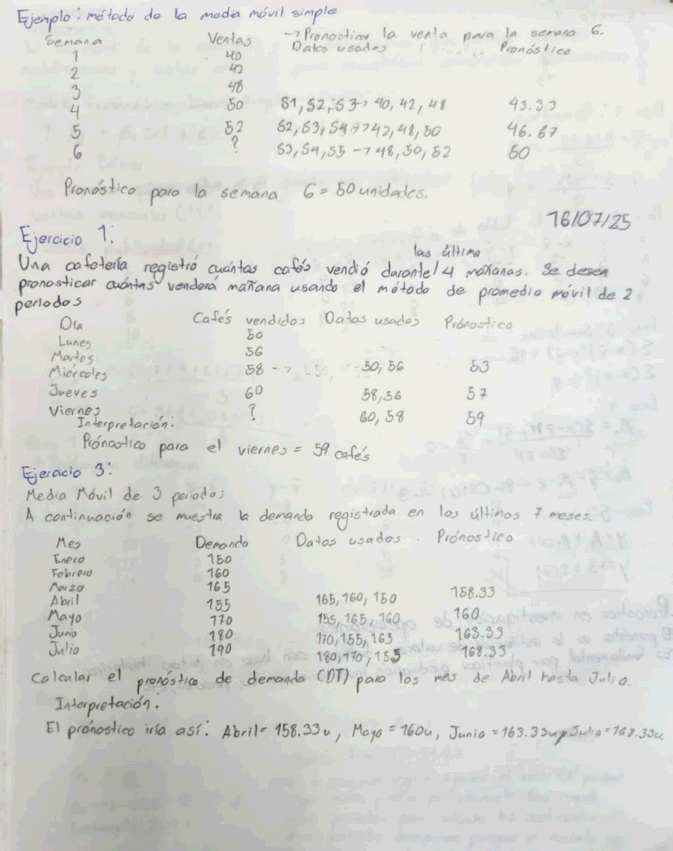 Ejemplo: método de la media móvil simple
Semana Ventas → Pronosticar la venta para la semana 6.
Datos usados Pronóstico
1 40
2 42
3 48
4 50 S1, S2, S3 → 40, 42, 48 43.33
5 52 S2, S3, S4 → 42, 48, 50 46.67
6 ? S3, S4, S5 → 48, 50, 52 50
Pronóstico para la semana 6 = 50 unidades.
16/07/25
Ejercicio 1:
Una cafetería registró cuántas cafés vendió durante las última 4 mañanas. Se desea
pronosticar cuántas venderá mañana usando el método de promedio móvil de 2
periodos
Día Cafés vendidos Datos usados Prónostico
Lunes 50
Martes 56
Miércoles 58 50, 56 53
Jueves 60 58, 56 57
Viernes ? 60, 58 59
Interpretación.
Prónostico para el viernes = 59 cafés
Ejercicio 3:
Media Móvil de 3 periodos
A continuación se muestra la demanda registrada en los últimos 7 meses.
Mes Demanda Datos usados. Prónostico
Enero 150
Febrero 160
Marzo 165
Abril 155 165, 160, 150 158.33
Mayo 170 155, 165, 160 160
Junio 180 170, 155, 165 163.33
Julio 190 180, 170, 155 168.33
Calcular el pronóstico de demanda (DT) para los mes de Abril hasta Julio.
Interpretación.
El prónostico iría así: Abril = 158.33u, Mayo = 160u, Junio = 163.33u y Julio = 168.33u